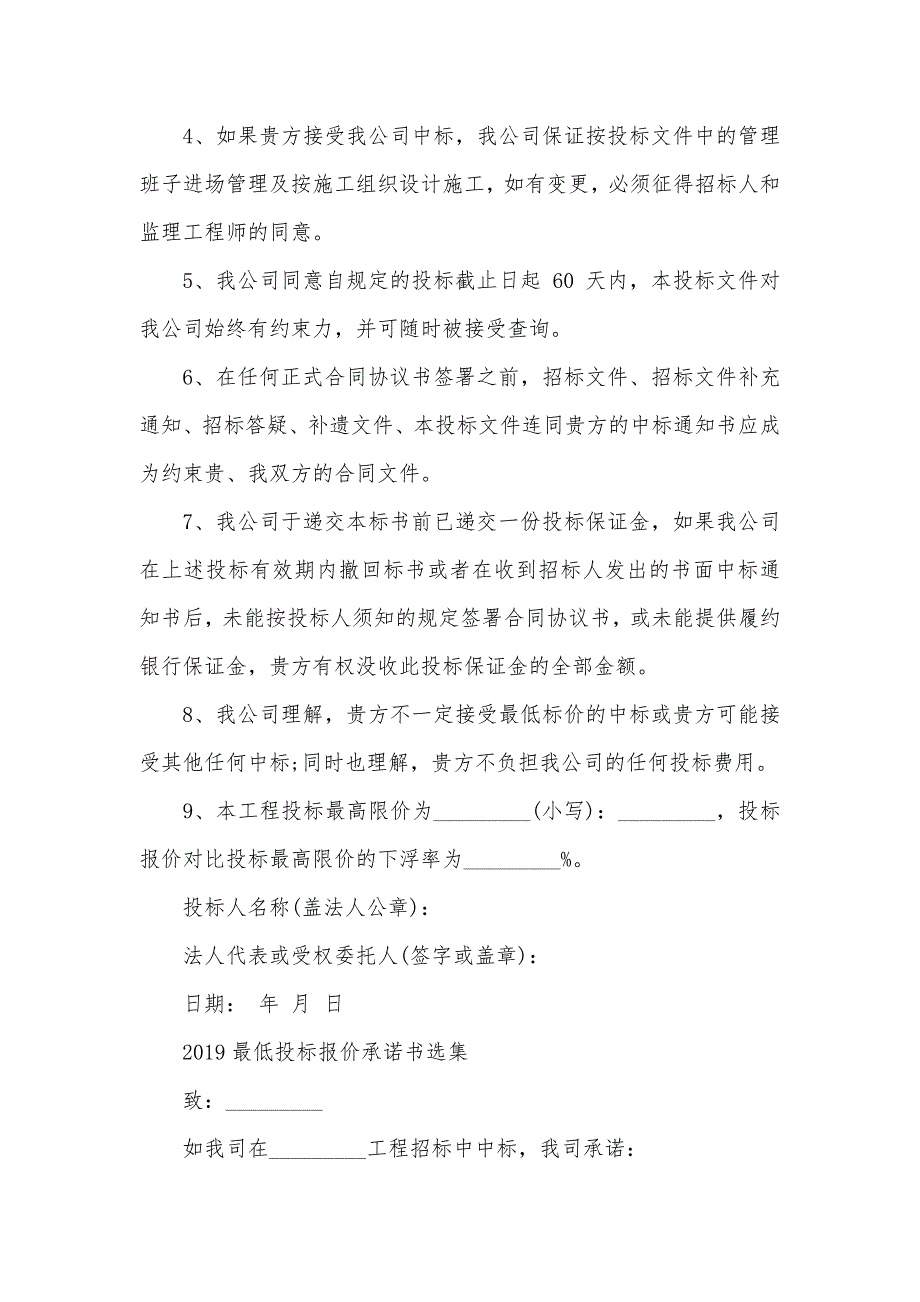 4、如果贵方接受我公司中标，我公司保证按投标文件中的管理
班子进场管理及按施工组织设计施工，如有变更，必须征得招标人和
监理工程师的同意。
5、我公司同意自规定的投标截止日起 60 天内，本投标文件对
我公司始终有约束力，并可随时被接受查询。
6、在任何正式合同协议书签署之前，招标文件、招标文件补充
通知、招标答疑、补遗文件、本投标文件连同贵方的中标通知书应成
为约束贵、我双方的合同文件。
7、我公司于递交本标书前已递交一份投标保证金，如果我公司
在上述投标有效期内撤回标书或者在收到招标人发出的书面中标通
知书后，未能按投标人须知的规定签署合同协议书，或未能提供履约
银行保证金，贵方有权没收此投标保证金的全部金额。
8、我公司理解，贵方不一定接受最低标价的中标或贵方可能接
受其他任何中标;同时也理解，贵方不负担我公司的任何投标费用。
9、本工程投标最高限价为_________(小写)：_________，投标
报价对比投标最高限价的下浮率为_________%。
投标人名称(盖法人公章)：
法人代表或受权委托人(签字或盖章)：
日期： 年 月 日
2019 最低投标报价承诺书选集
致：_________
如我司在_________工程招标中中标，我司承诺：